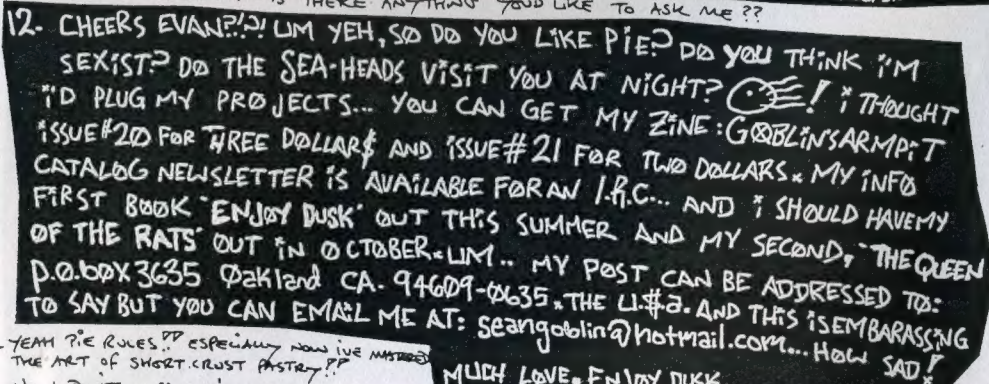 IS THERE ANYTHING YOU'D LIKE TO ASK ME??
12. CHEERS EVAN?!?! UM YEH, SO DO YOU LIKE PIE? DO YOU THINK I'M
SEXIST? DO THE SEA-HEADS VISIT YOU AT NIGHT? ! I THOUGHT
I'D PLUG MY PROJECTS... YOU CAN GET MY ZINE: GOBLINSARMPIT
ISSUE #20 FOR THREE DOLLAR$ AND ISSUE #21 FOR TWO DOLLARS. MY INFO
CATALOG NEWSLETTER IS AVAILABLE FOR AN I.R.C... AND I SHOULD HAVE MY
FIRST BOOK "ENJOY DUSK" OUT THIS SUMMER AND MY SECOND, "THE QUEEN
OF THE RATS" OUT IN OCTOBER. UM.. MY POST CAN BE ADDRESSED TO:
P.O. BOX 3635 Oakland CA. 94609-0635. THE U.$.a. AND THIS IS EMBARASSING
TO SAY BUT YOU CAN EMAIL ME AT: seangoblin@hotmail.com... HOW SAD!
MUCH LOVE. ENJOY DUSK
YEAH PIE RULES!? ESPECIALLY NOW IVE MASTERED
THE ART OF SHORT.CRUST PASTRY!?